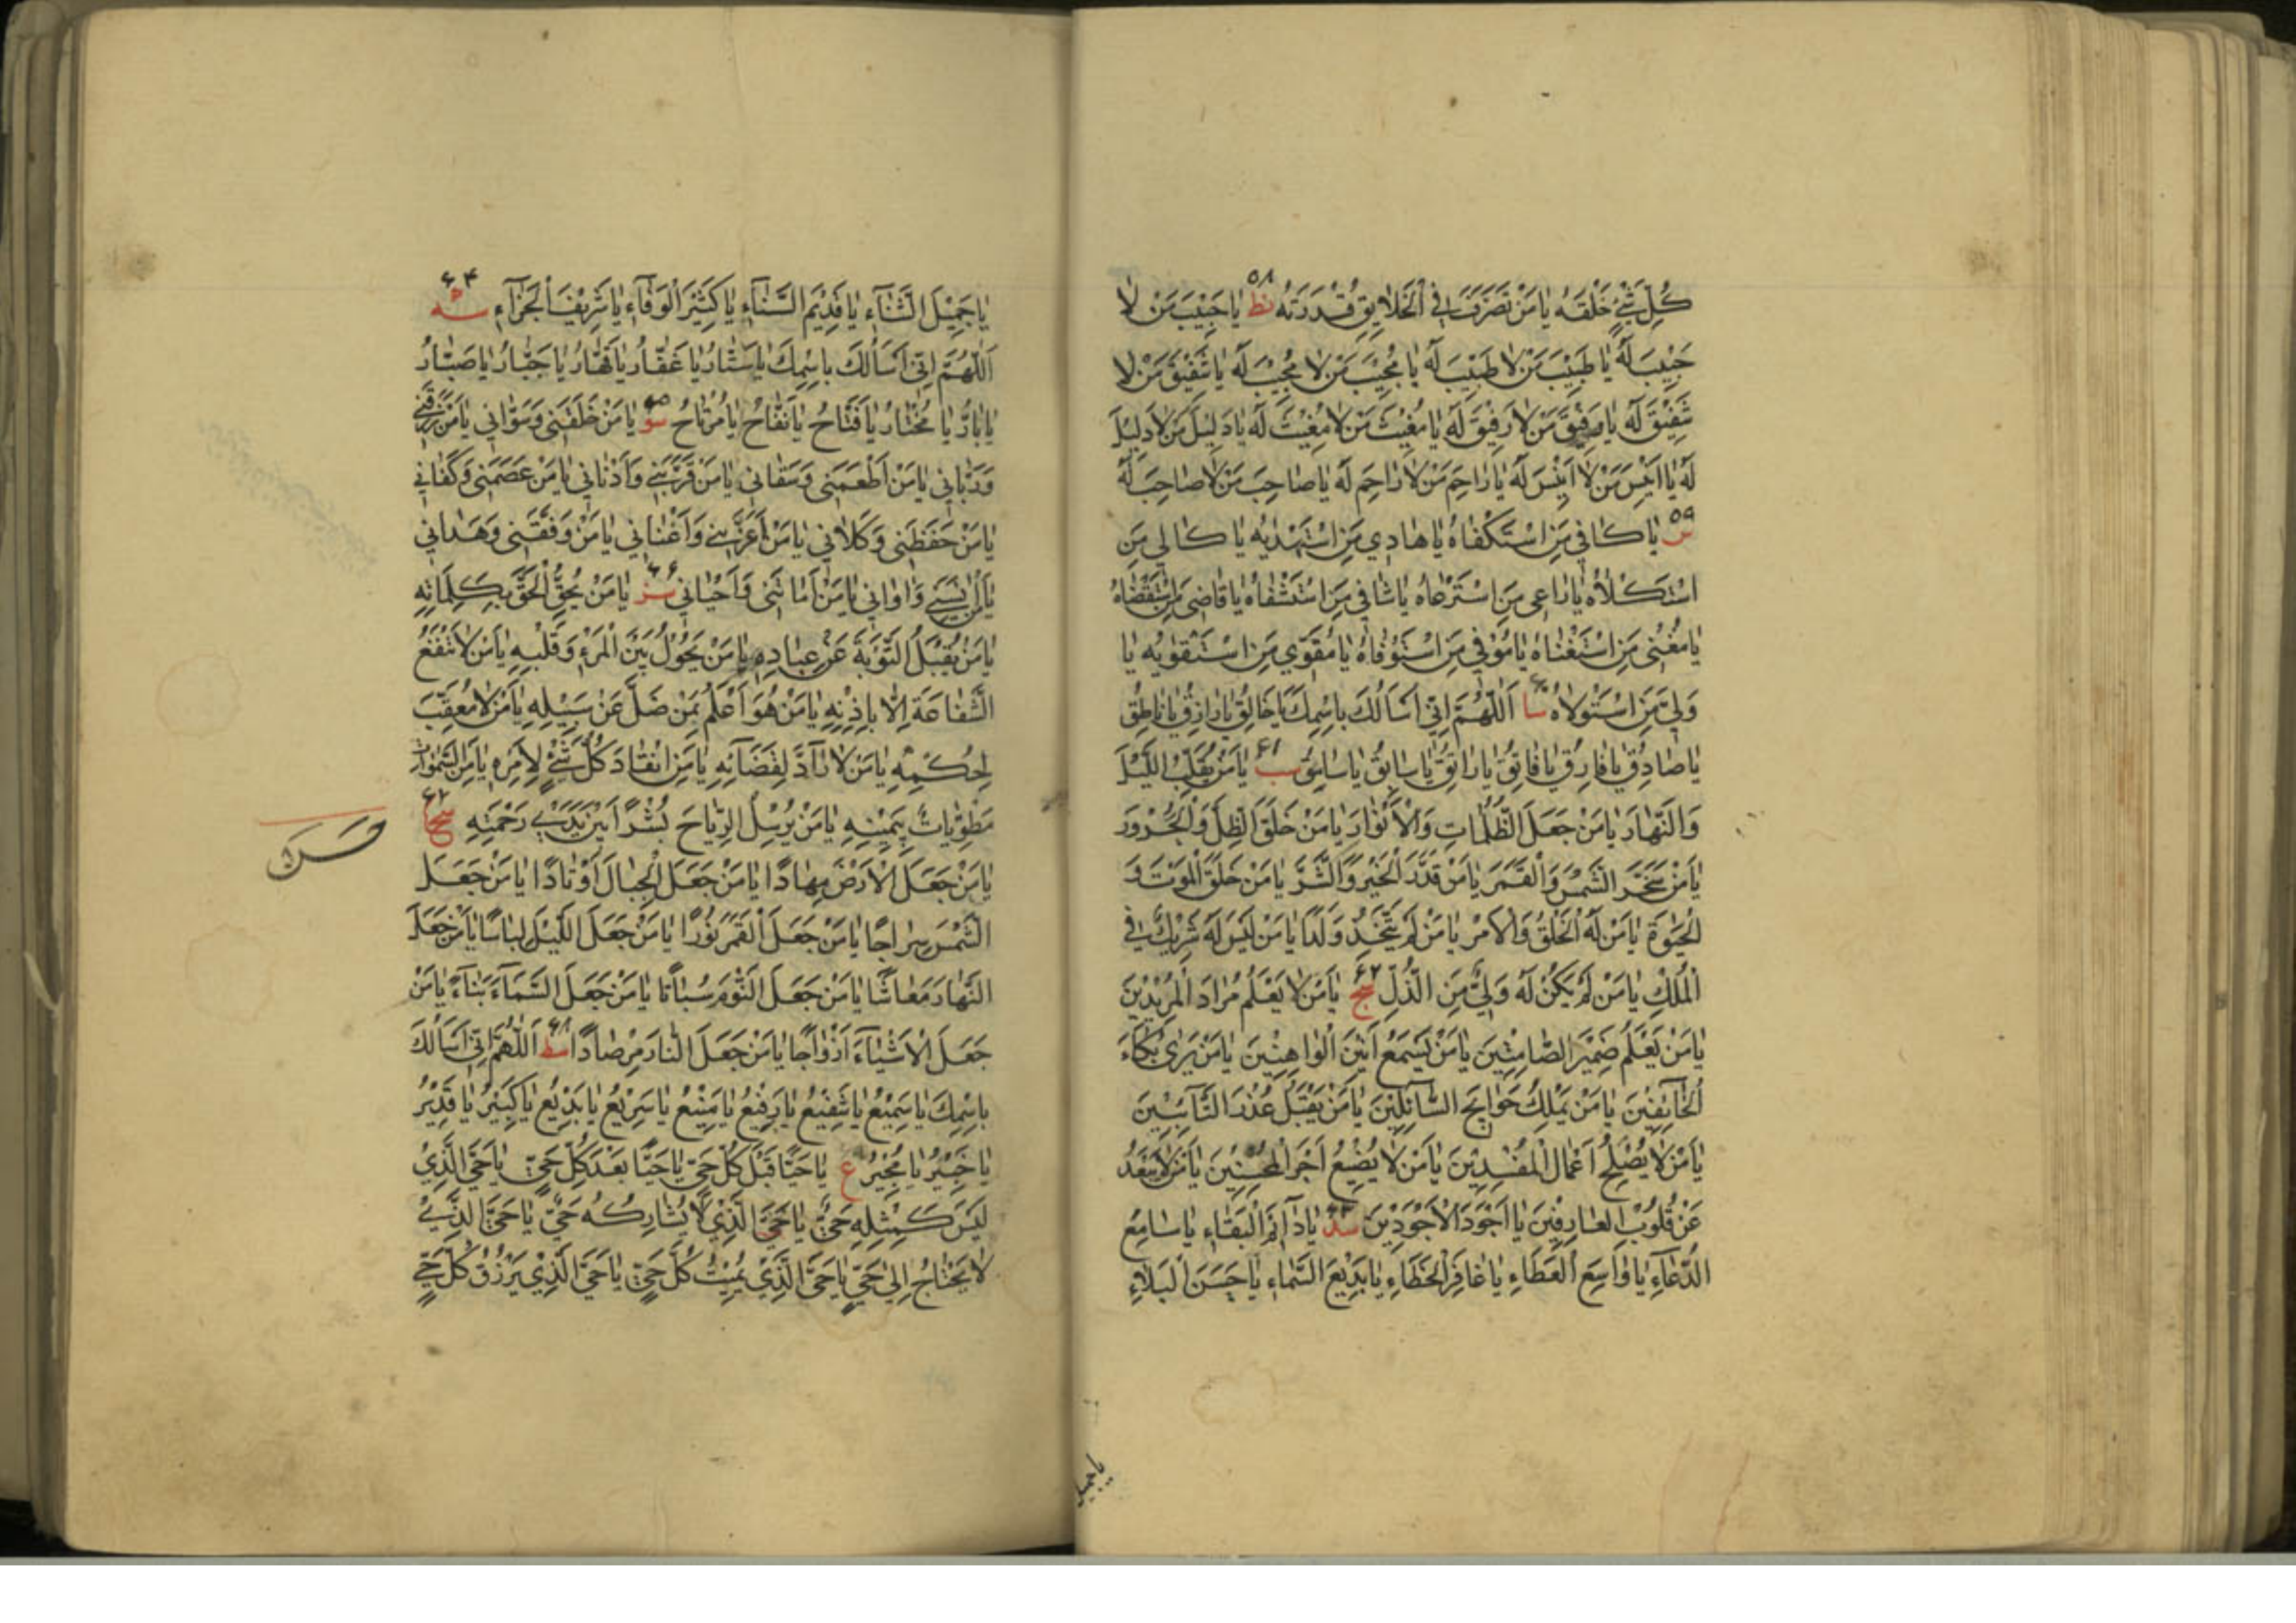 كُلِّ شَيْءٍ خَلْقَهُ يَا مَنْ تَصَرَّفَ فِي الْخَلَايِقِ قُدْرَتُهُ نط ۵۸ يَا حَبِيبَ مَنْ لَا
حَبِيبَ لَهُ يَا طَبِيبَ مَنْ لَا طَبِيبَ لَهُ يَا مُجِيبَ مَنْ لَا مُجِيبَ لَهُ يَا شَفِيقَ مَنْ لَا
شَفِيقَ لَهُ يَا رَفِيقَ مَنْ لَا رَفِيقَ لَهُ يَا مُغِيثَ مَنْ لَا مُغِيثَ لَهُ يَا دَلِيلَ مَنْ لَا دَلِيلَ
لَهُ يَا اَنِيسَ مَنْ لَا اَنِيسَ لَهُ يَا رَاحِمَ مَنْ لَا رَاحِمَ لَهُ يَا صَاحِبَ مَنْ لَا صَاحِبَ لَهُ
س ۵۹ يَا كَافِي مَنِ اسْتَكْفَاهُ يَا هَادِي مَنِ اسْتَهْدَيهُ يَا كَالِي مَنِ
اسْتَكْلَاهُ يَا رَاعِي مَنِ اسْتَرْعَاهُ يَا شَافِي مَنِ اسْتَشْفَاهُ يَا قَاضِي مَنِ اسْتَقْضَاهُ
يَا مُغْنِي مَنِ اسْتَغْنَاهُ يَا مُوفِي مَنِ اسْتَوْفَاهُ يَا مُقَوِّي مَنِ اسْتَقْوَيهُ يَا
وَلِيَّ مَنِ اسْتَوْلَاهُ سا ۶۰ اَللّٰهُمَّ اِنِّي اَسْاَلُكَ بِاسْمِكَ يَا خَالِقُ يَا رَازِقُ يَا نَاطِقُ
يَا صَادِقُ يَا فَارِقُ يَا فَاتِقُ يَا رَاتِقُ يَا سَابِقُ يَا سَامِقُ سب ۶۱ يَا مَنْ يُقَلِّبُ اللَّيْلَ
وَالنَّهَارَ يَا مَنْ جَعَلَ الظُّلُمَاتِ وَالْاَنْوَارَ يَا مَنْ خَلَقَ الظِّلَّ وَالْحَرُورَ
يَا مَنْ سَخَّرَ الشَّمْسَ وَالْقَمَرَ يَا مَنْ قَدَّرَ الْخَيْرَ وَالشَّرَّ يَا مَنْ خَلَقَ الْمَوْتَ وَ
الْحَيٰوةَ يَا مَنْ لَهُ الْخَلْقُ وَالْاَمْرُ يَا مَنْ لَمْ يَتَّخِذْ وَلَدًا يَا مَنْ لَيْسَ لَهُ شَرِيكٌ فِي
الْمُلْكِ يَا مَنْ لَمْ يَكُنْ لَهُ وَلِيٌّ مِنَ الذُّلِّ سج ۶۲ يَا مَنْ لَا يَعْلَمُ مُرَادَ الْمُرِيدِينَ
يَا مَنْ يَعْلَمُ ضَمِيرَ الصَّامِتِينَ يَا مَنْ يَسْمَعُ اَنِينَ الْوَاهِنِينَ يَا مَنْ يَرٰى بُكَاءَ
الْخَائِفِينَ يَا مَنْ يَمْلِكُ حَوَايِجَ السَّائِلِينَ يَا مَنْ يَقْبَلُ عُذْرَ التَّائِبِينَ
يَا مَنْ لَا يُصْلِحُ اَعْمَالَ الْمُفْسِدِينَ يَا مَنْ لَا يُضِيعُ اَجْرَ الْمُحْسِنِينَ يَا مَنْ لَا يَبْعُدُ
عَنْ قُلُوبِ الْعَارِفِينَ يَا اَجْوَدَ الْاَجْوَدِينَ سد ۶۳ يَا دَائِمَ الْبَقَاءِ يَا سَامِعَ
الدُّعَاءِ يَا وَاسِعَ الْعَطَاءِ يَا غَافِرَ الْخَطَاءِ يَا بَدِيعَ السَّمَاءِ يَا حَسَنَ الْبَلَاءِ
يا جميل
يَا جَمِيلَ الثَّنَاءِ يَا قَدِيمَ السَّنَاءِ يَا كَثِيرَ الْوَفَاءِ يَا شَرِيفَ الْجَزَاءِ سه ۶۴
اَللّٰهُمَّ اِنِّي اَسْاَلُكَ بِاسْمِكَ يَا سَتَّارُ يَا غَفَّارُ يَا قَهَّارُ يَا جَبَّارُ يَا صَبَّارُ
يَا بَارُّ يَا مُخْتَارُ يَا فَتَّاحُ يَا نَفَّاحُ يَا مُرْتَاحُ سو ۶۵ يَا مَنْ خَلَقَنِي وَسَوَّانِي يَا مَنْ رَزَقَنِي
وَرَبَّانِي يَا مَنْ اَطْعَمَنِي وَسَقَانِي يَا مَنْ قَرَّبَنِي وَاَدْنَانِي يَا مَنْ عَصَمَنِي وَكَفَانِي
يَا مَنْ حَفِظَنِي وَكَلَانِي يَا مَنْ اَعَزَّنِي وَاَغْنَانِي يَا مَنْ وَفَّقَنِي وَهَدَانِي
يَا مَنْ اٰنَسَنِي وَاٰوَانِي يَا مَنْ اَمَاتَنِي وَاَحْيَانِي سز ۶۶ يَا مَنْ يُحِقُّ الْحَقَّ بِكَلِمَاتِهِ
يَا مَنْ يَقْبَلُ التَّوْبَةَ عَنْ عِبَادِهِ يَا مَنْ يَحُولُ بَيْنَ الْمَرْءِ وَقَلْبِهِ يَا مَنْ لَا تَنْفَعُ
الشَّفَاعَةُ اِلَّا بِاِذْنِهِ يَا مَنْ هُوَ اَعْلَمُ بِمَنْ ضَلَّ عَنْ سَبِيلِهِ يَا مَنْ لَا مُعَقِّبَ
لِحُكْمِهِ يَا مَنْ لَا رَادَّ لِقَضَائِهِ يَا مَنِ انْقَادَ كُلُّ شَيْءٍ لِاَمْرِهِ يَا مَنِ السَّمٰوَاتُ
مَطْوِيَّاتٌ بِيَمِينِهِ يَا مَنْ يُرْسِلُ الرِّيَاحَ بُشْرًا بَيْنَ يَدَيْ رَحْمَتِهِ سح ۶۷
يَا مَنْ جَعَلَ الْاَرْضَ مِهَادًا يَا مَنْ جَعَلَ الْجِبَالَ اَوْتَادًا يَا مَنْ جَعَلَ
الشَّمْسَ سِرَاجًا يَا مَنْ جَعَلَ الْقَمَرَ نُورًا يَا مَنْ جَعَلَ اللَّيْلَ لِبَاسًا يَا مَنْ جَعَلَ
النَّهَارَ مَعَاشًا يَا مَنْ جَعَلَ النَّوْمَ سُبَاتًا يَا مَنْ جَعَلَ السَّمَاءَ بِنَاءً يَا مَنْ
جَعَلَ الْاَشْيَاءَ اَزْوَاجًا يَا مَنْ جَعَلَ النَّارَ مِرْصَادًا سط ۶۸ اَللّٰهُمَّ اِنِّي اَسْاَلُكَ
بِاسْمِكَ يَا سَمِيعُ يَا شَفِيعُ يَا رَفِيعُ يَا مَنِيعُ يَا سَرِيعُ يَا بَدِيعُ يَا كَبِيرُ يَا قَدِيرُ
يَا خَبِيرُ يَا مُجِيرُ ع يَا حَيًّا قَبْلَ كُلِّ حَيٍّ يَا حَيًّا بَعْدَ كُلِّ حَيٍّ يَا حَيُّ الَّذِي
لَيْسَ كَمِثْلِهِ حَيٌّ يَا حَيُّ الَّذِي لَا يُشَارِكُهُ حَيٌّ يَا حَيُّ الَّذِي
لَا يَحْتَاجُ اِلٰى حَيٍّ يَا حَيُّ الَّذِي يُمِيتُ كُلَّ حَيٍّ يَا حَيُّ الَّذِي يَرْزُقُ كُلَّ حَيٍّ